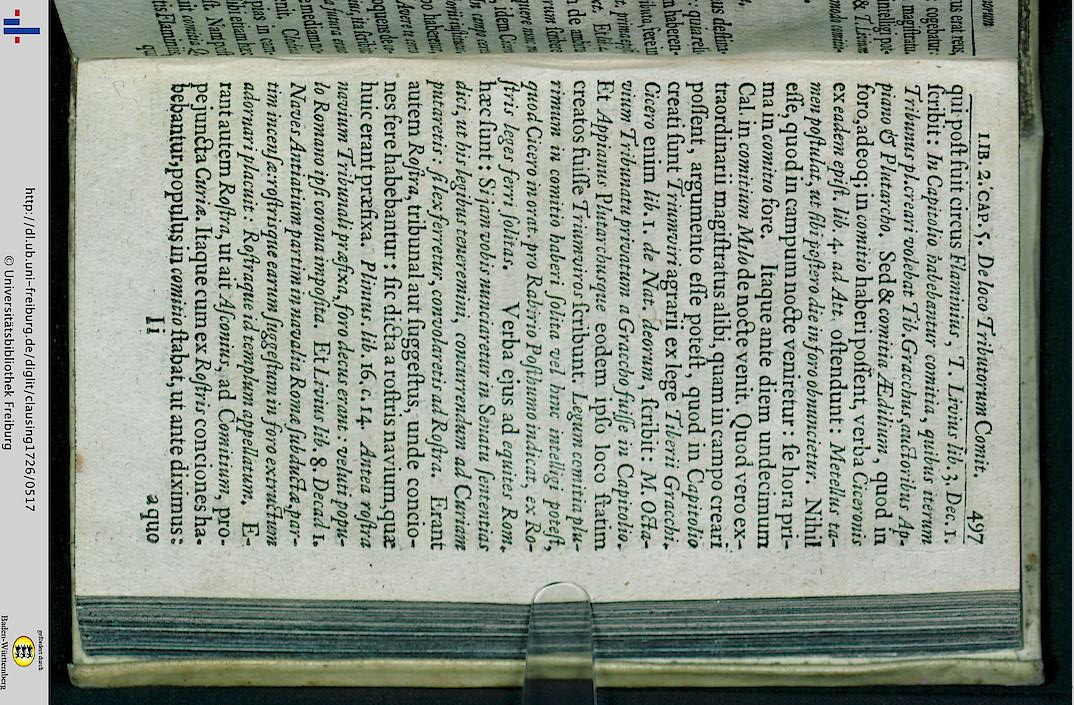 LIB. 2. CAP. 5. De loco Tributorum Comit. 497
qui post fuit circus Flaminius, T. Livius lib. 3. Dec. 1.
scribit: In Capitolio habebantur comitia, quibus iterum
Tribunus pl. creari volebat Tib. Gracchus, auctoribus Ap-
piano & Plutarcho. Sed & comitia Ædilium, quod in
foro, adeoq; in comitio haberi possent, verba Ciceronis
ex eadem epist. lib. 4. ad At. ostendunt: Metellus ta-
men postulat, ut sibi postero die in foro obnuncietur. Nihil
esse, quod in campum nocte veniretur: se hora pri-
ma in comitio fore. Itaque ante diem undecimum
Cal. in comitium Milo de nocte venit. Quod vero ex-
traordinarii magistratus alibi, quam in campo creari
possent, argumento esse potest, quod in Capitolio
creati sunt Triumviri agrarii ex lege Tiberii Gracchi.
Cicero enim lib. 1. de Nat. deorum, scribit: M. Octa-
vium Tribunatu privatum a Graccho fuisse in Capitolio.
Et Appianus Plutarchusque eodem ipso loco statim
creatos fuisse Triumviros scribunt. Legum comitia plu-
rimum in comitio haberi solita vel hinc intelligi potest,
quod Cicero in orat. pro Rabirio Posthumo indicat, ex Ro-
stris leges ferri solitas. Verba ejus ad equites Rom.
hæc sunt: Si jam vobis nunciaretur in Senatu sententias
dici, ut his legibus teneremini, concurrendum ad Curiam
putaretis: si lex ferretur, convolaretis ad Rostra. Erant
autem Rostra, tribunal aut suggestus, unde concio-
nes fere habebantur: sic dicta a rostris navium, quæ
huic erant præfixa. Plinius lib. 16. c. 14. Antea rostra
navium Tribunali præfixa, foro decus erant: veluti popu-
lo Romano ipsi corona imposita. Et Livius lib. 8. Decad 1.
Naves Antiatium partim in navalia Romæ subductæ, par-
tim incensæ, rostrisque earum suggestum in foro extructum
adornari placuit: Rostraque id templum appellatum. E-
rant autem Rostra, ut ait Asconius, ad Comitium, pro-
pe juncta Curiæ. Itaque cum ex Rostris conciones ha-
bebantur, populus in comitio stabat, ut ante diximus:
Ii a quo
http://dl.ub.uni-freiburg.de/diglit/clausing1726/0517
© Universitätsbibliothek Freiburg
gefördert durch
Baden-Württemberg